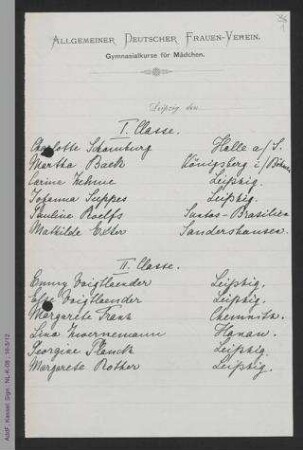 ALLGEMEINER DEUTSCHER FRAUEN-VEREIN.
Gymnasialkurse für Mädchen.
Leipzig, den
I. Classe.
Charlotte Schomburg Halle a/S.
Martha Baeck Königsberg i/
Carina Leipzig.
Johanna Suppes Leipzig.
Pauline Roelfs Santos-Brasilien
Mathilde Sondershausen.
II. Classe.
Emmy Voigtlaender Leipzig.
Voigtlaender Leipzig.
Margarete Chemnitz.
Lina Hanau.
Georgine Planck Leipzig.
Margarete Rother Leipzig.
AddF, Kassel, Sign.: NL-K-08 ; 16-5/12